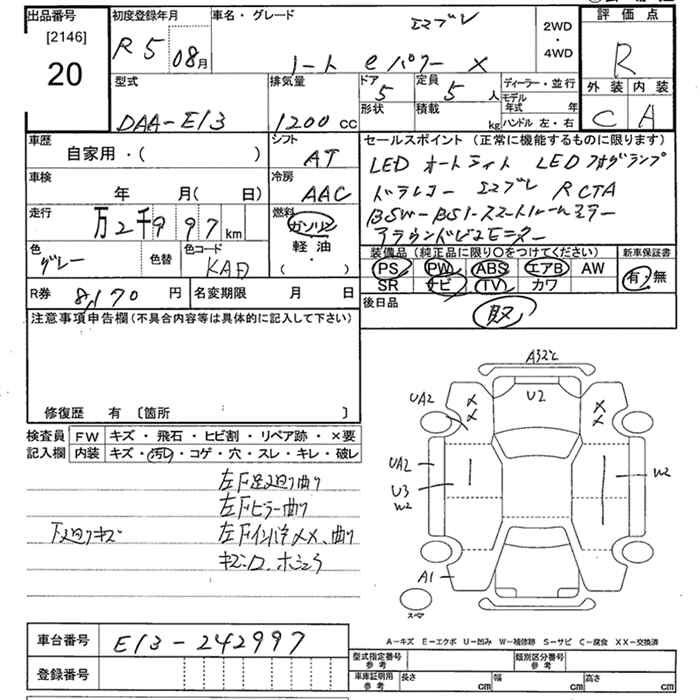 出品番号
[2146]
20
初度登録年月
R5 08月
車名・グレード
エマブレ
ノート eパワー X
2WD
・
4WD
評価点
R
外装 内装
C A
型式
DAA-E13
排気量
1200 CC
ドア
5
定員
5 人
形状
積載
kg
ディーラー・並行
モデル年式 年
ハンドル 左・右
車歴
自家用・( )
シフト
AT
車検
年 月( 日)
冷房
AAC
走行
万2千997 km
燃料
ガソリン
軽油
( ・ )
色
グレー
色替
色コード
KAD
R券 8,170 円
名変期限 月 日
セールスポイント(正常に機能するものに限ります)
LED オートライト LED フォグランプ
ドラレコー エマブレ RCTA
BSW-BSI-スマートルームミラー
アラウンドビューモニター
装備品(純正品に限り○をつけてください)
PS PW ABS エアB AW
SR ナビ TV カワ
新車保証書
有・無
後日品
取
注意事項申告欄(不具合内容等は具体的に記入して下さい)
修復歴 有 〔箇所 〕
検査員
記入欄
FW キズ・飛石・ヒビ割・リペア跡・×要
内装 キズ・汚れ・コゲ・穴・スレ・キレ・破レ
左F足廻り曲り
左Fピラー曲り
下廻りキズ
左FインパネXX、曲り
キズシロ、ホシュウ
A32ヒ
UA2
U2
UA2
U3
W2
W2
A1
スーマ
A-キズ E-エクボ U-凹み W-補修跡 S-サビ C-腐食 XX-交換済
車台番号
E13-242997
登録番号
型式指定番号
参考
類別区分番号
参考
車庫証明用
参考
長さ cm
幅 cm
高さ cm